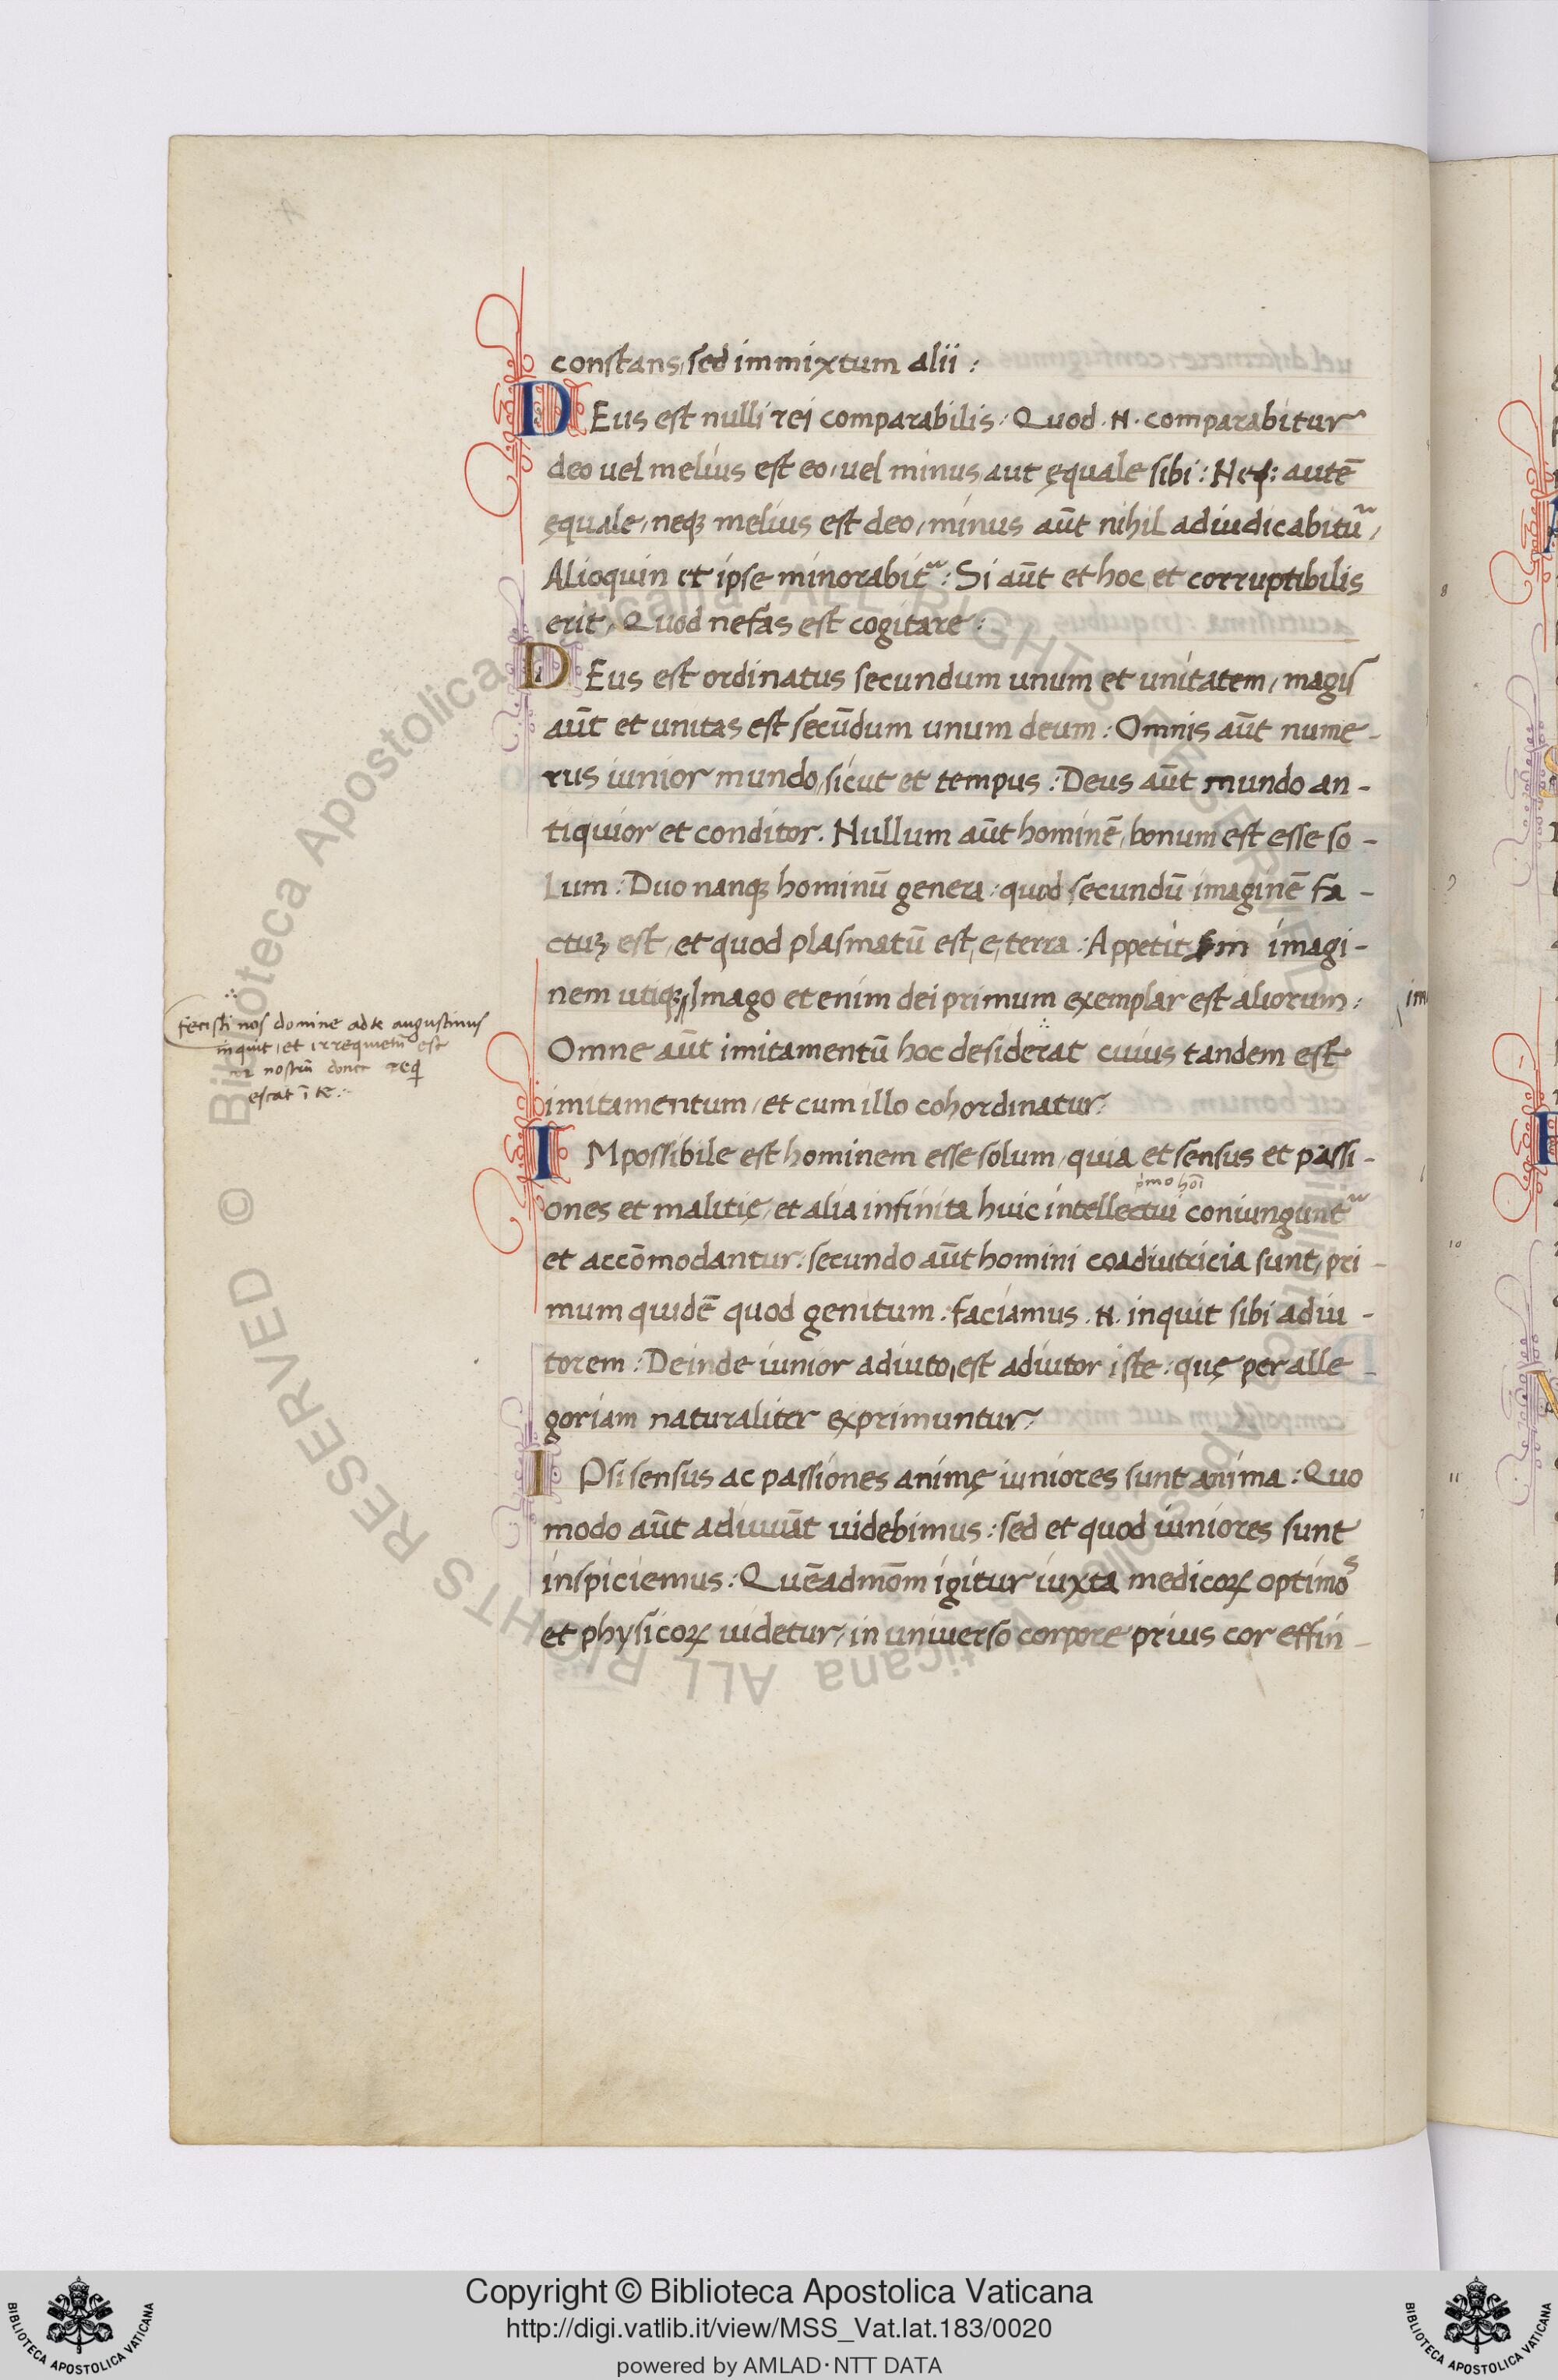 constans, sed immixtum alii :
DEus est nulli rei comparabilis : Quod .N. comparabitur
deo uel melius est eo, uel minus, aut ęquale sibi : Neq: autē
ęquale, neqꝫ melius est deo, minus aūt nihil adiudicabitu᷑,
Alioquin et ipse minorabit᷑ : Si aūt et hoc, et corruptibilis
erit, Quod nefas est cogitare :
DEus est ordinatus secundum unum et unitatem, magis
aūt et unitas est secūdum unum deum : Omnis aūt nume-
rus iunior mundo, sicut et tempus : Deus aūt mundo an-
tiquior et conditor. Nullum aūt hominē, bonum est esse so-
lum : Duo nanqꝫ hominū genera : quod secundū imaginē fa-
ctuꝫ est, et quod plasmatū est, e, terra : Appetit im imagi-
nem utiqꝫ, Imago et enim dei primum exemplar est aliorum :
Omne aūt imitamentū hoc desiderat cuius tandem est
imitamentum, et cum illo cohordinatur,
fecisti nos domine ad te augustinus
inquit, et irrequietū est
cor nostrū donec req̄
escat ī te
IMpossibile est hominem esse solum, quia et sensus et passi-
pmo hoī
ones et malitię, et alia infinita huic intellectui coniungunt᷑
et accōmodantur : secundo aūt homini coadiutricia sunt, pri-
mum quidē quod genitum : faciamus .N. inquit sibi adiu-
torem : Deinde iunior adiuto, est adiutor iste : quę per alle-
goriam naturaliter exprimuntur,
IPsi sensus ac passiones animę iuniores sunt anima : Quo
modo aūt adiuuāt uidebimus : sed et quod iuniores sunt
inspiciemus : Quēadmōm igitur iuxta medicoꝝ optimos
et physicoꝝ uidetur, in uniuerso corpore prius cor effin-
8
9
10
11
im
Biblioteca Apostolica Vaticana ALL RIGHTS RESERVED ©
Copyright © Biblioteca Apostolica Vaticana
http://digi.vatlib.it/view/MSS_Vat.lat.183/0020
powered by AMLAD·NTT DATA
BIBLIOTECA APOSTOLICA VATICANA
BIBLIOTECA APOSTOLICA VATICANA